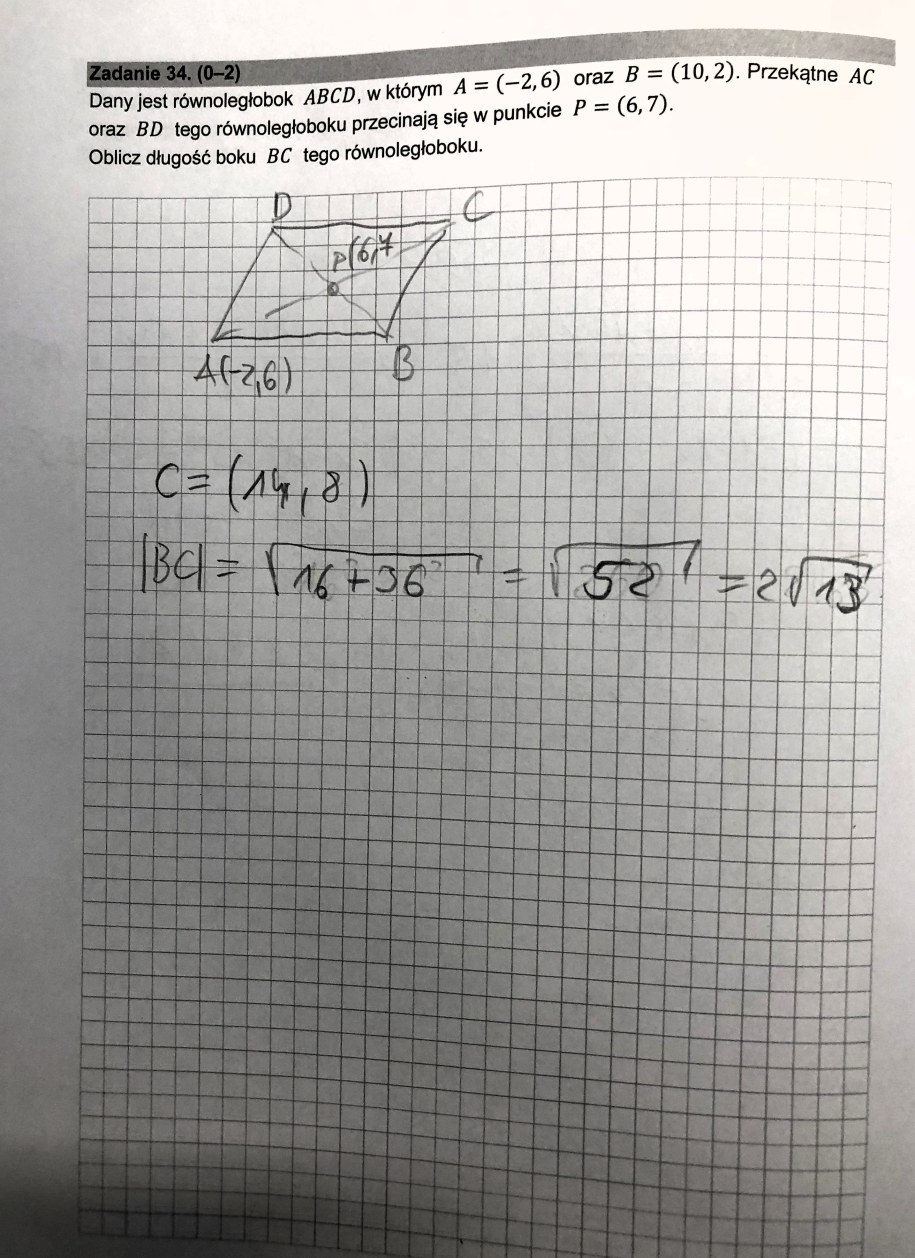 Zadanie 34. (0–2)
Dany jest równoległobok ABCD, w którym A = (−2, 6) oraz B = (10, 2). Przekątne AC
oraz BD tego równoległoboku przecinają się w punkcie P = (6, 7).
Oblicz długość boku BC tego równoległoboku.
D C
P(6,7
A(-2,6) B
C = (14, 8)
|BC| = √16+36 = √52 = 2√13